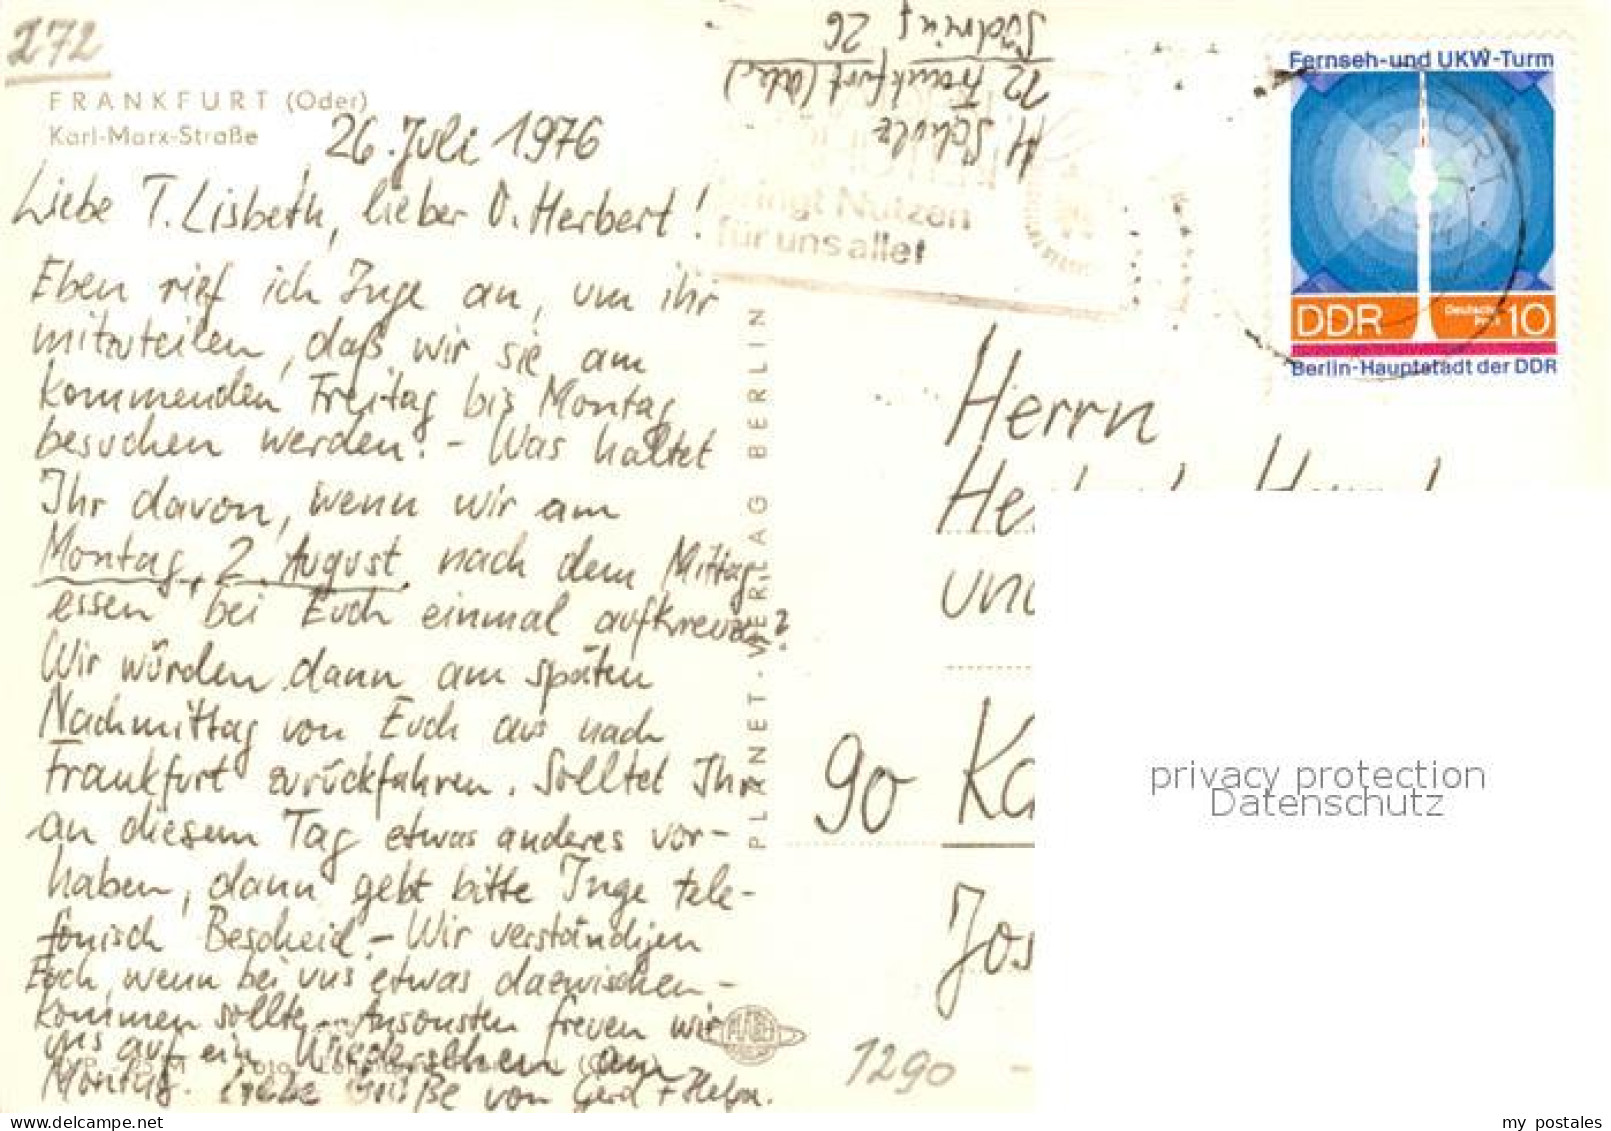 272
FRANKFURT (Oder)
Karl-Marx-Straße
26. Juli 1976
Liebe T. Lisbeth, lieber O. Herbert!
Eben rief ich Inge an, um ihr
mitzuteilen, daß wir sie am
kommenden Freitag bis Montag
besuchen werden. - Was haltet
Ihr davon, wenn wir am
Montag, 2. August, nach dem Mittag
essen bei Euch einmal aufkreuzen?
Wir würden dann am späten
Nachmittag von Euch aus nach
Frankfurt zurückfahren. Solltet Ihr
an diesem Tag etwas anderes vor-
haben, dann gebt bitte Inge tele-
fonisch Bescheid. - Wir verständigen
Euch, wenn bei uns etwas dazwischen-
kommen sollte. Ansonsten freuen wir
uns auf ein Wiedersehen am
Montag. Liebe Grüße von Gerd + Helga.
Foto
PLANET-VERLAG BERLIN
PLANET
M. Schulz
12 Frankfurt (Oder)
Südring 26
bringt Nutzen
für uns alle!
Fernseh- und UKW-Turm
DDR
Deutsche
Post
10
Berlin-Hauptstadt der DDR
Herrn
90
1290
privacy protection
Datenschutz
my postales